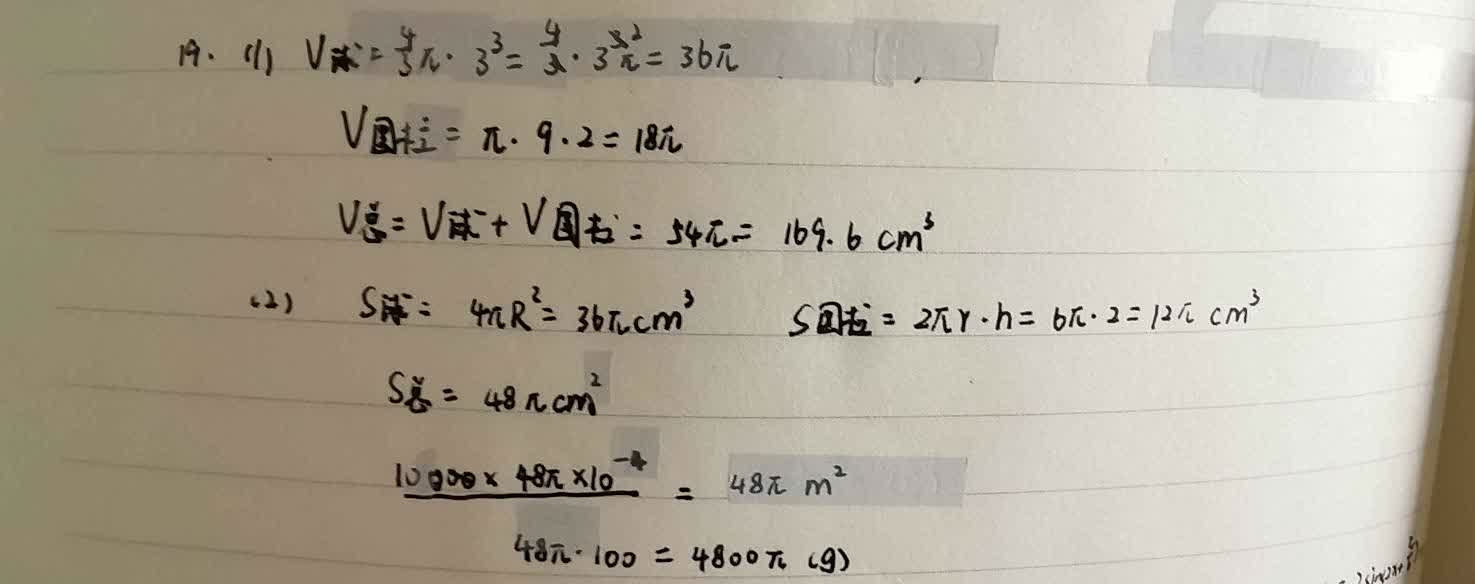 19. (1) V球 = 4/3 π · 3³ = 4/3 · 3³ π = 36π
V圆柱 = π · 9 · 2 = 18π
V总 = V球 + V圆柱 = 54π = 169.6 cm³
(2) S球 = 4πR² = 36π cm³ S圆柱 = 2πr · h = 6π · 2 = 12π cm³
S总 = 48π cm²
10000 × 48π × 10⁻⁴ = 48π m²
48π · 100 = 4800π (g)